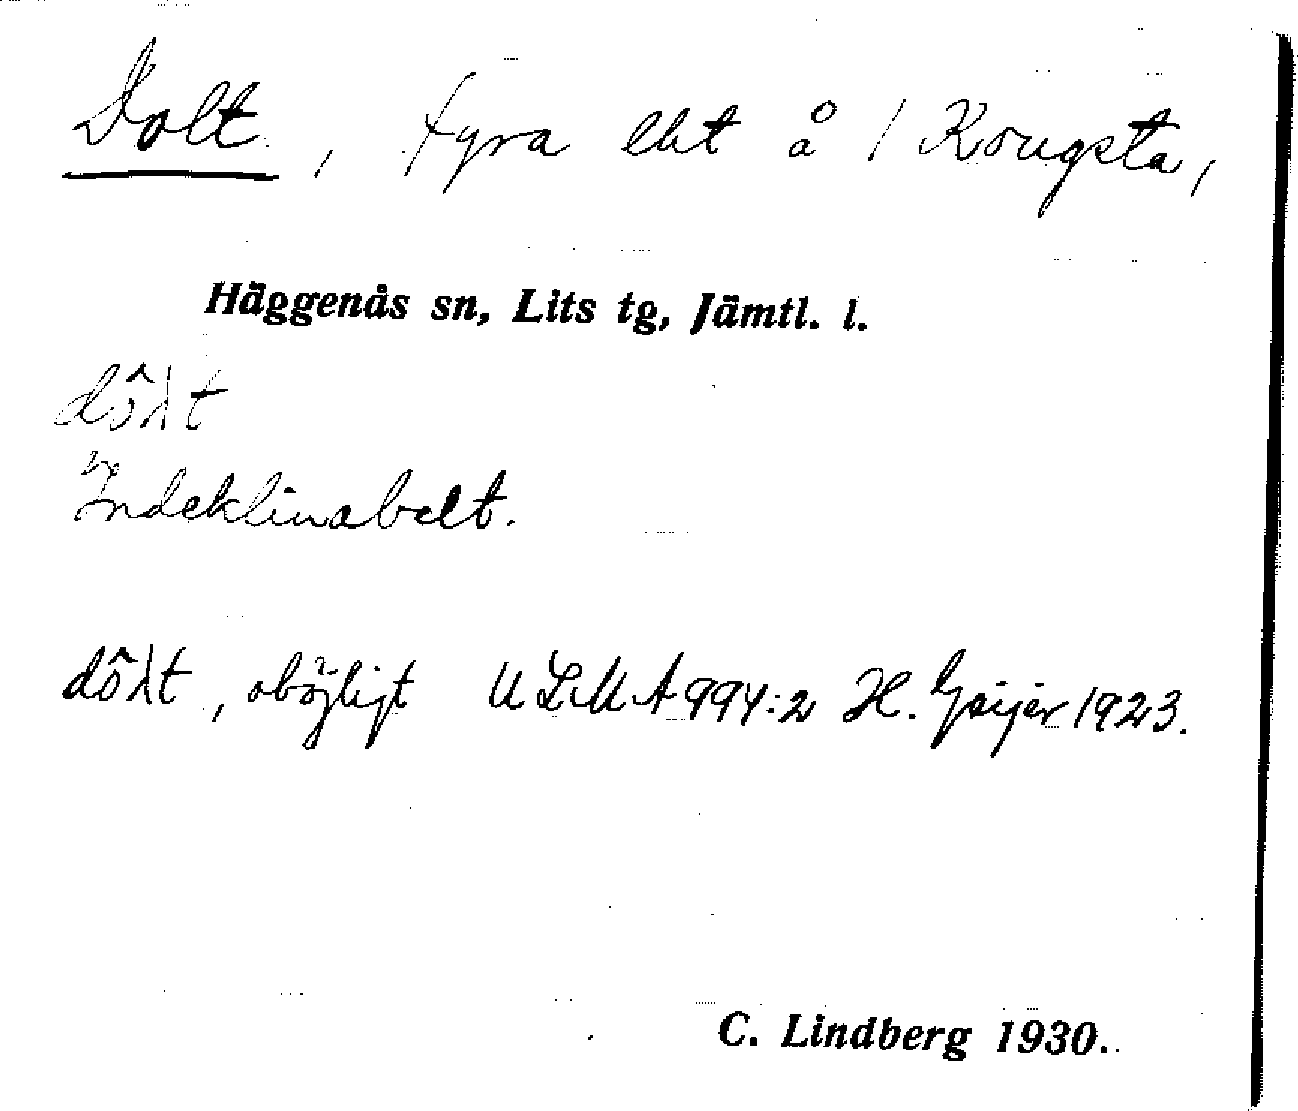 Dolt, fyra lht å / Kougsta,
Häggenås sn, Lits tg, Jämtl. l.
dô̬λt
Indeklinabelt.
dôλt, oböjligt ULMA 994:2 H. Geijer 1923.
C. Lindberg 1930.